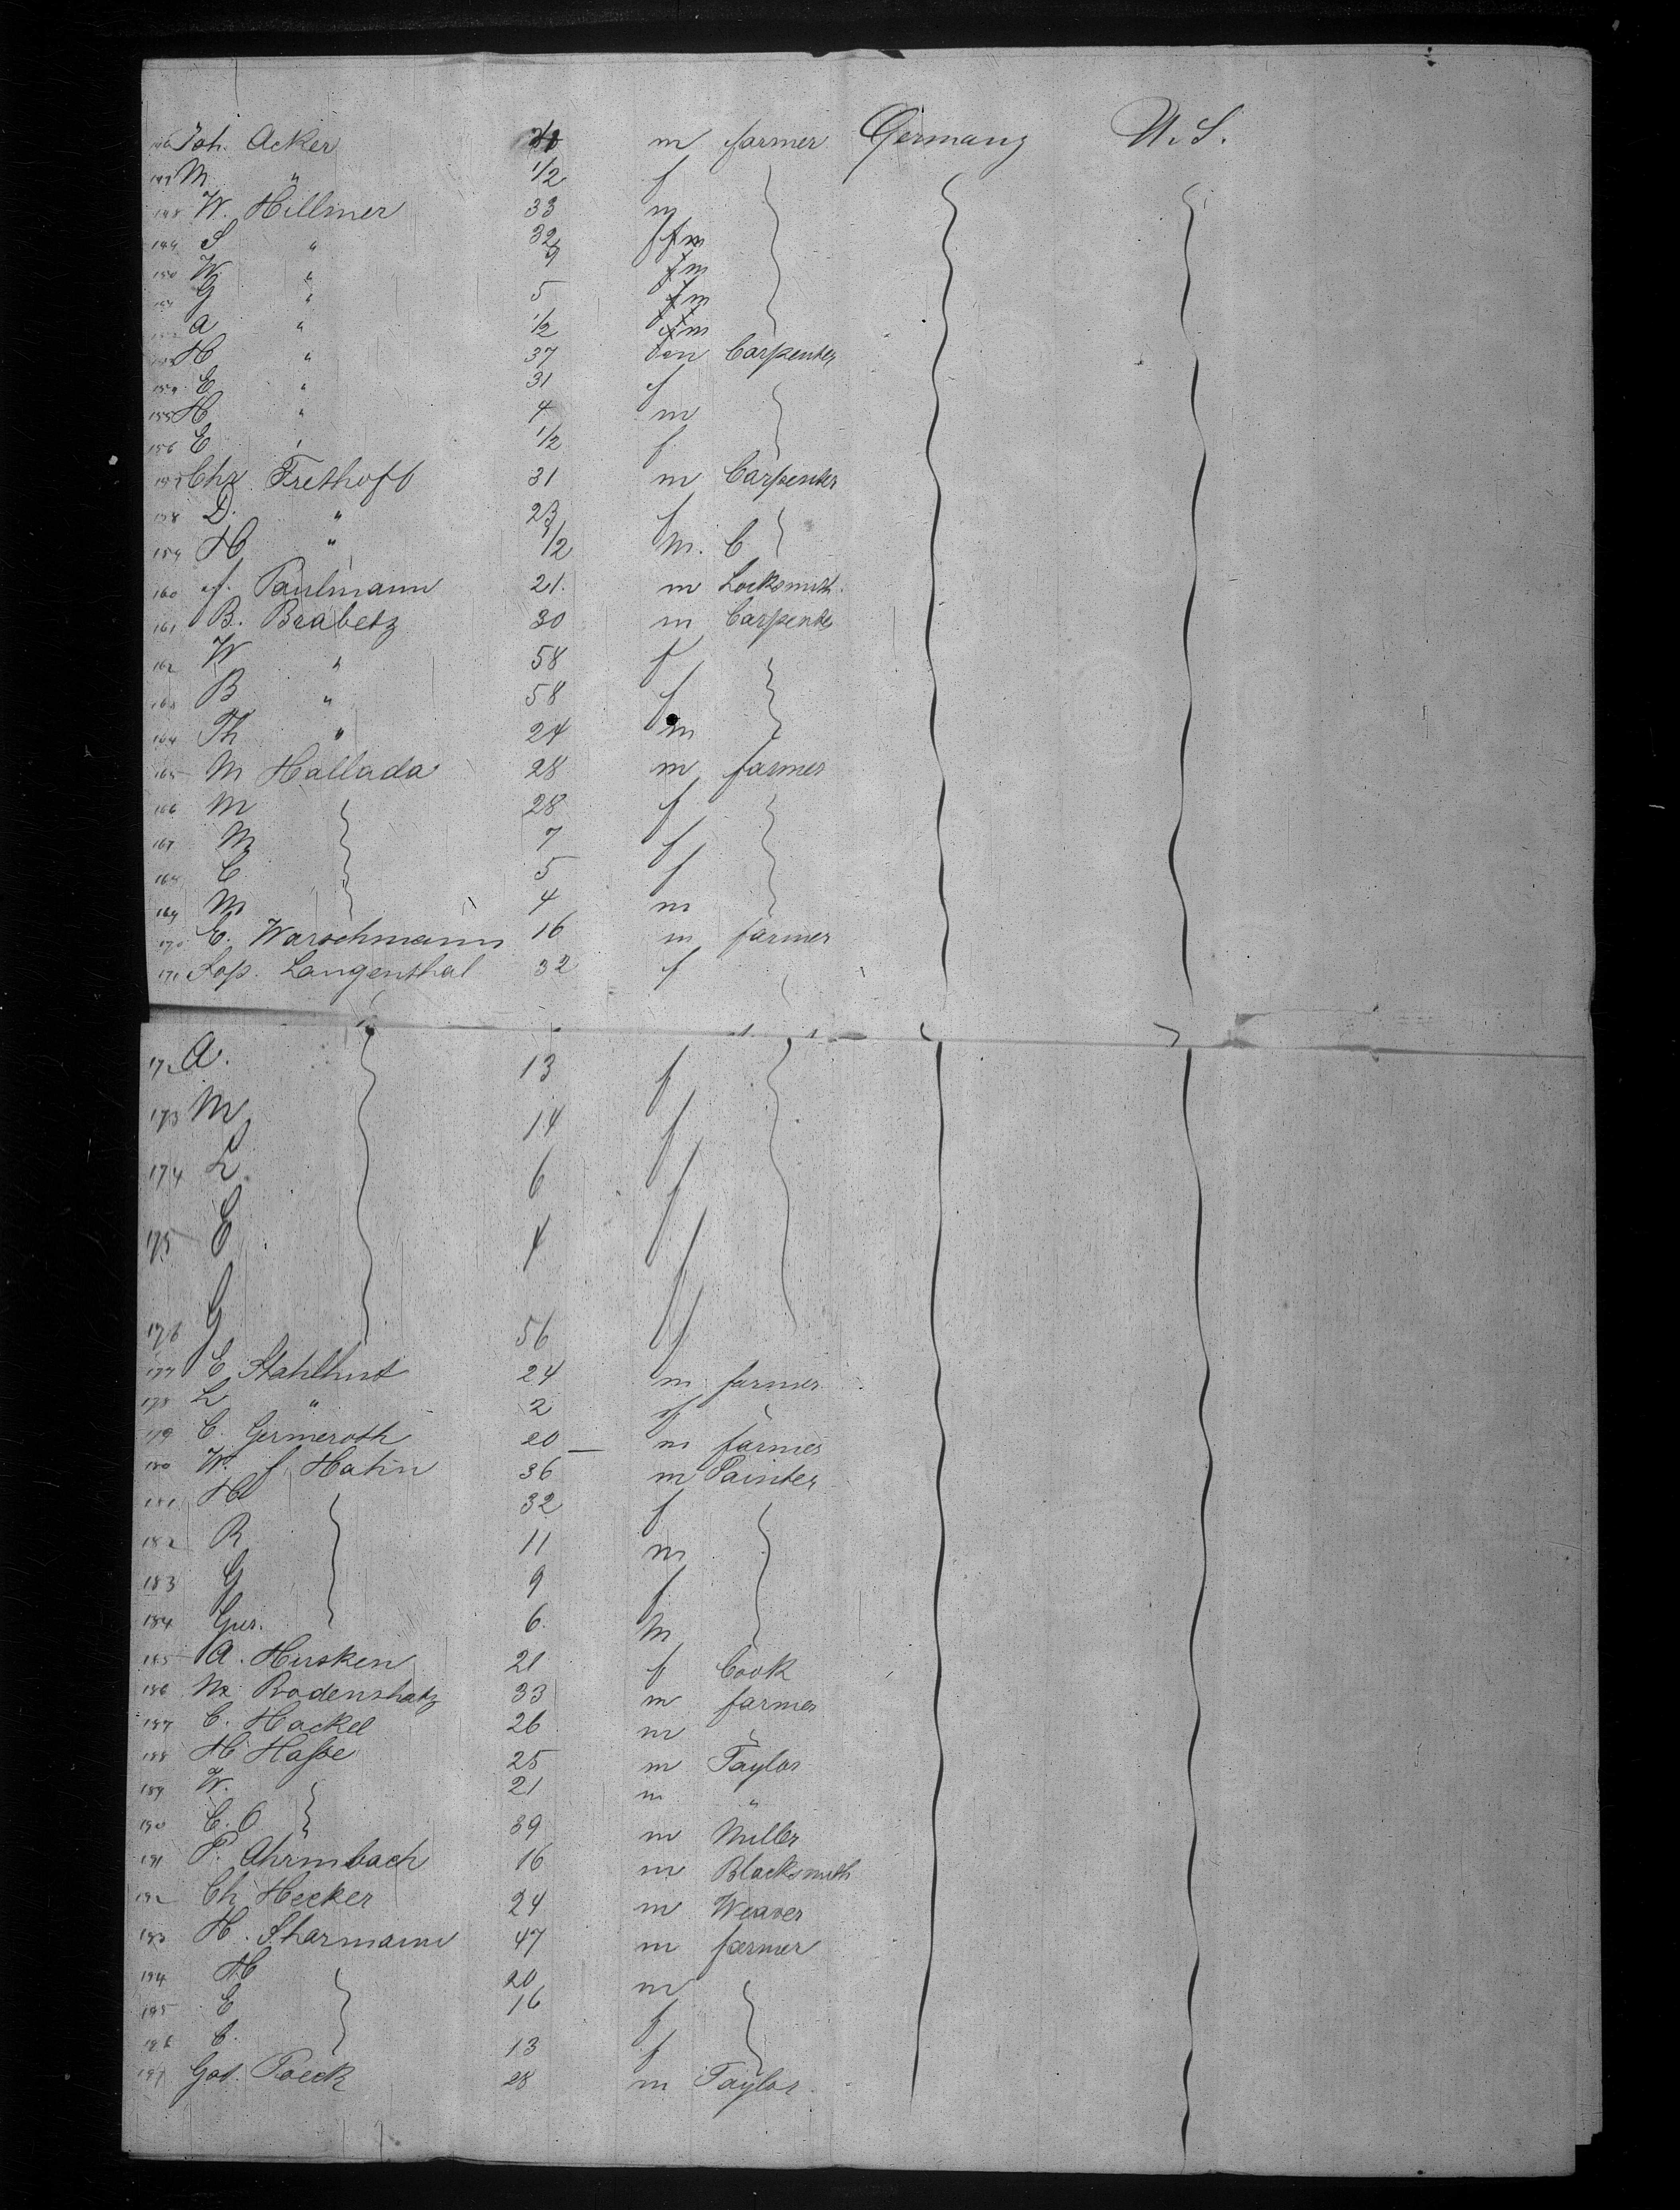 146 Joh. Acker m farmer Germany U.S.
147 M " 1/2 f
148 W. Hillmer 33 m
149 S " 32 f m
150 W " 9 f m
151 G " 5 f m
152 a " 1/2 f m
153 H " 37 m Carpenter
154 E " 31 f
155 H " 4 m
156 E " 1/2 f
157 Chr Frethoff 31 m Carpenter
158 D. " 23 f
159 H " 1/2 m. C
160 f. Paulmann 21. m Locksmith.
161 B. Brabetz 30 m Carpenter
162 W " 58 f
163 B " 58 f
164 Th " 24 m
165 M Hallada 28 m farmer
166 M 28 f
167 M 7 f
168 C 5 f
169 M 4 m
170 E. Warschmann 16 m farmer
171 Sop. Langenthal 32 f
172 A. 13 f
173 M 14 f
174 L 6 f
175 E 4 f
176 G 56 f
177 E Stahlhut 24 m farmer
178 L " 2 f
179 C. Germeroth 20 m farmer
180 W. f Hahn 36 m Painter
181 H 32 f
182 R 11 m
183 G 9 f
184 Gus. 6 m
185 A. Husken 21 f Cook
186 M Bodenshatz 33 m farmer
187 C. Hackel 26 m
188 H Hasse 25 m Taylor
189 W. 21 m "
190 C. O 39 m Miller
191 P. Ahrmbach 16 m Blacksmith
192 Ch Hecker 24 m Weaver
193 H. Sharmann 47 m farmer
194 H 20 m
195 E 16 f
196 C. 13 f
197 Got. Poeck 28 m Taylor.